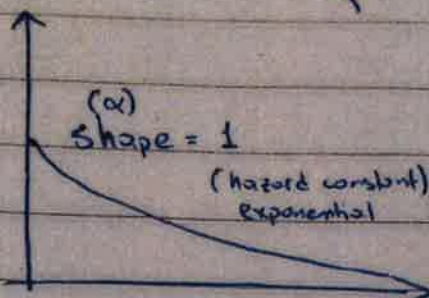 (α)
shape = 1
(hazard constant)
exponential